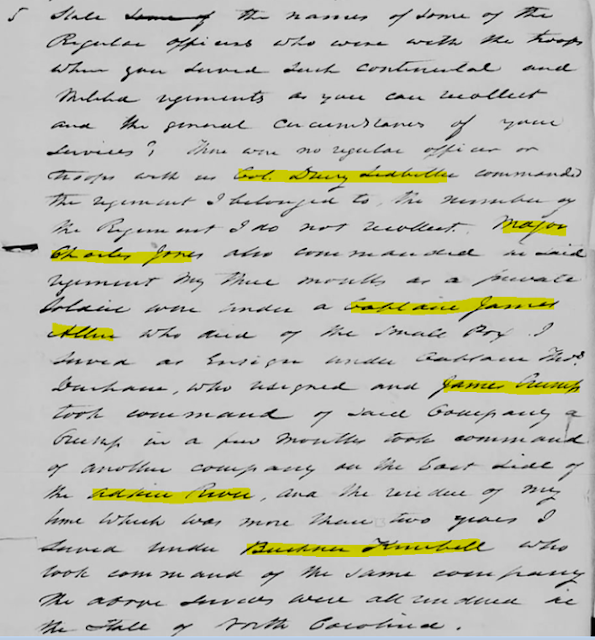 5 State some of the names of some of the
Regular officers who were with the troops
when you served such continental and
Militia regiments as you can recollect
and the general circumstances of your
services; there were no regular officer or
troops with us Col. Drury Ledbetter commanded
the regiment I belonged to the number of
the Regiment I do not recollect. Major
Charles Jones also commanded in said
regiment My three months as a private
Soldier were under a Captain James
Allen who died of the Small Pox I
served as Ensign under Captain Thos.
who resigned and James Crump
took command of said Company a
Crump in a few months took command
of another company on the East side of
the River, and the residue of my
time which was more than two years I
served under Buckner Kimbell who
took command of the same company
the above services were all rendered in
the State of North Carolina.